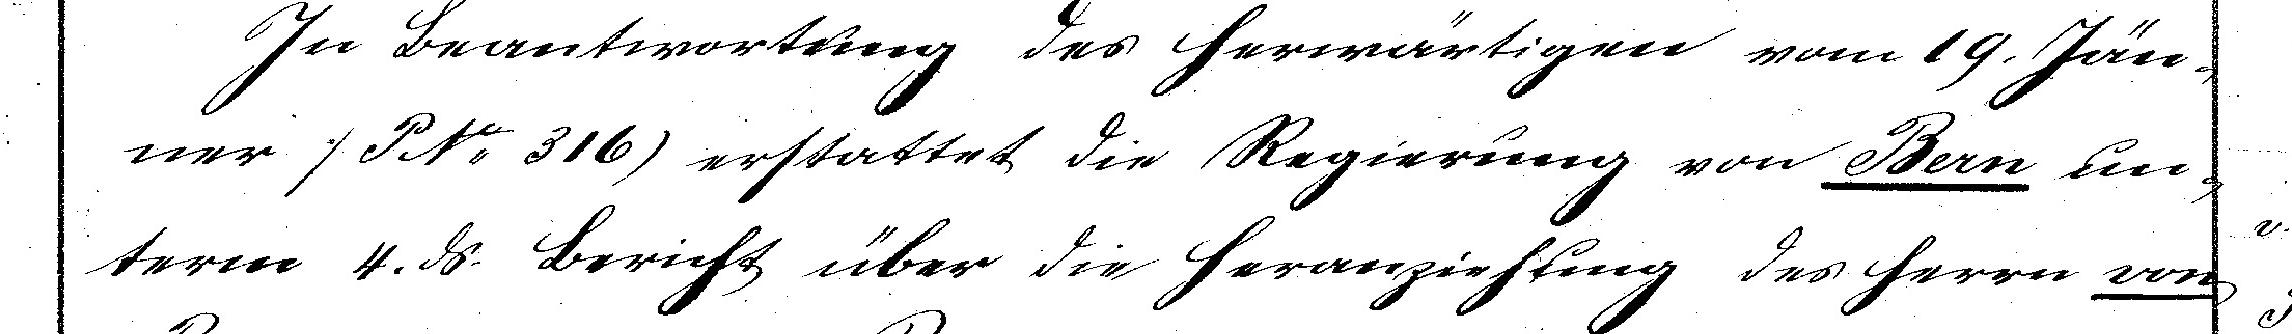 In Beantwortung des herwärtigen vom 19. Jän-
ner (P. No. 316) erstattet die Regierung von Bern un-
term 4. ds. Bericht über die Heranziehung des Herrn von